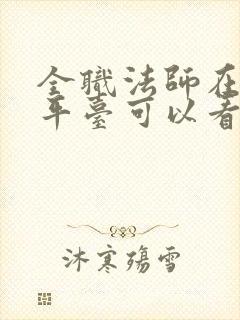 全職法師在
平臺可以看
沐寒殤雪